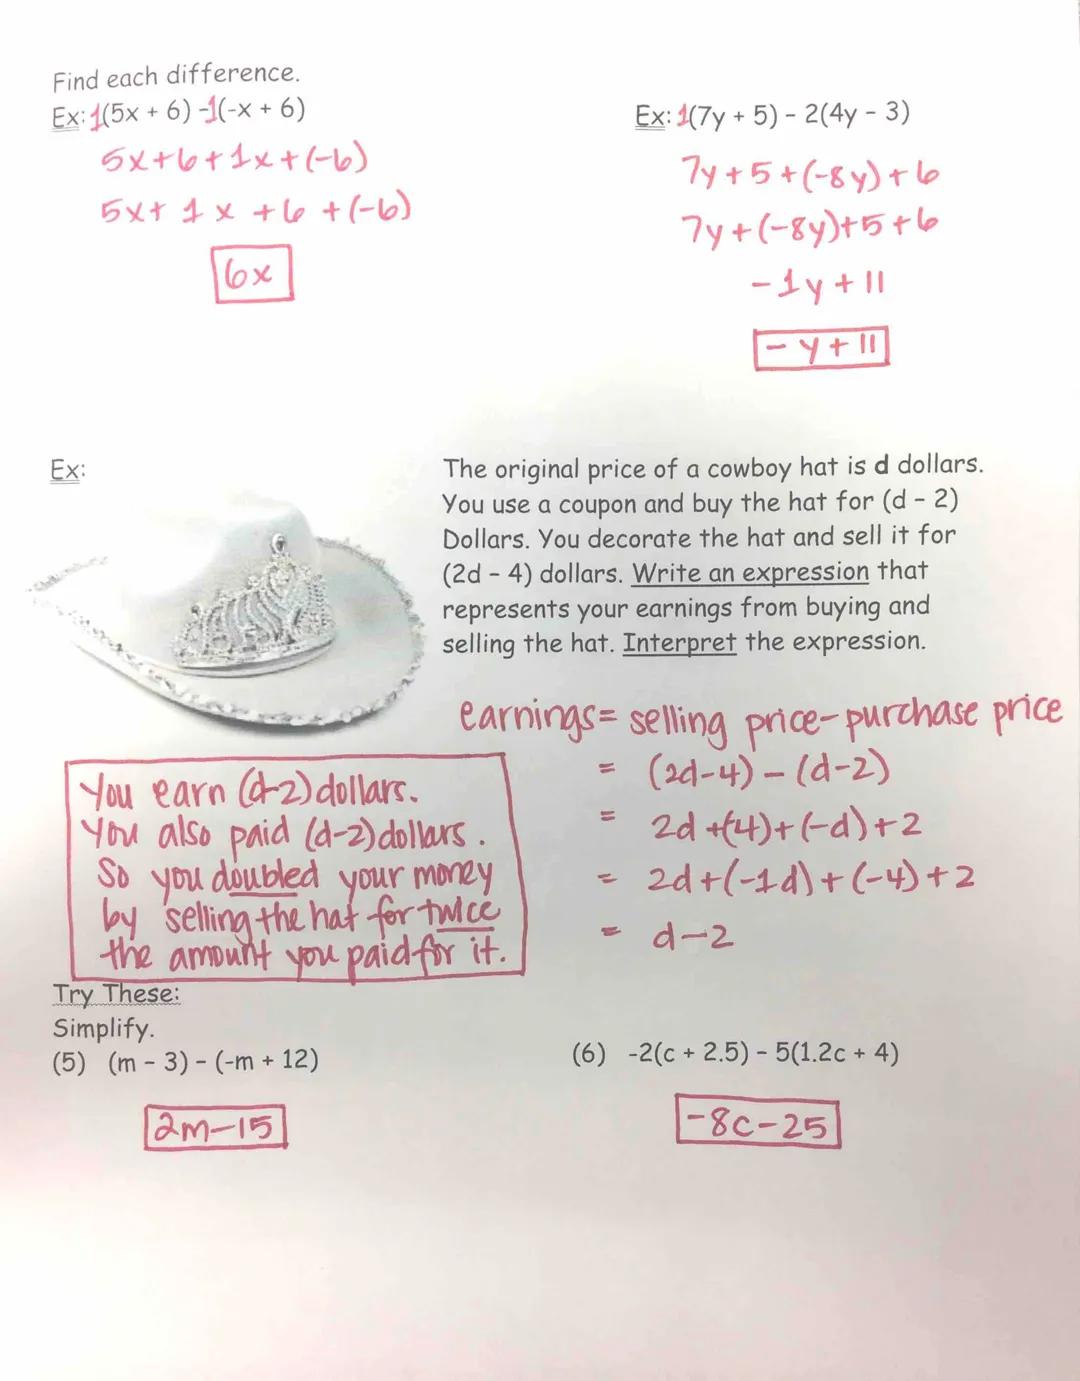 Find each difference.
Ex: 1(5x + 6) -1(-x + 6)
5x+6+1x+(-6)
5x+ 1x +6 +(-6)
6x
Ex: 1(7y + 5) - 2(4y - 3)
7y+5+(-8y)+6
7y+(-8y)+5+6
-1y+11
-y+11
Ex:
The original price of a cowboy hat is d dollars.
You use a coupon and buy the hat for (d - 2)
Dollars. You decorate the hat and sell it for
(2d - 4) dollars. Write an expression that
represents your earnings from buying and
selling the hat. Interpret the expression.
earnings= selling price-purchase price
= (2d-4)-(d-2)
= 2d+(4)+(-d)+2
= 2d+(-1d)+(-4)+2
= d-2
You earn (d-2) dollars.
You also paid (d-2) dollars.
So you doubled your money
by selling the hat for twice
the amount you paid for it.
Try These:
Simplify.
(5) (m - 3) - (-m + 12)
2m-15
(6) -2(c + 2.5) - 5(1.2c + 4)
-8c-25